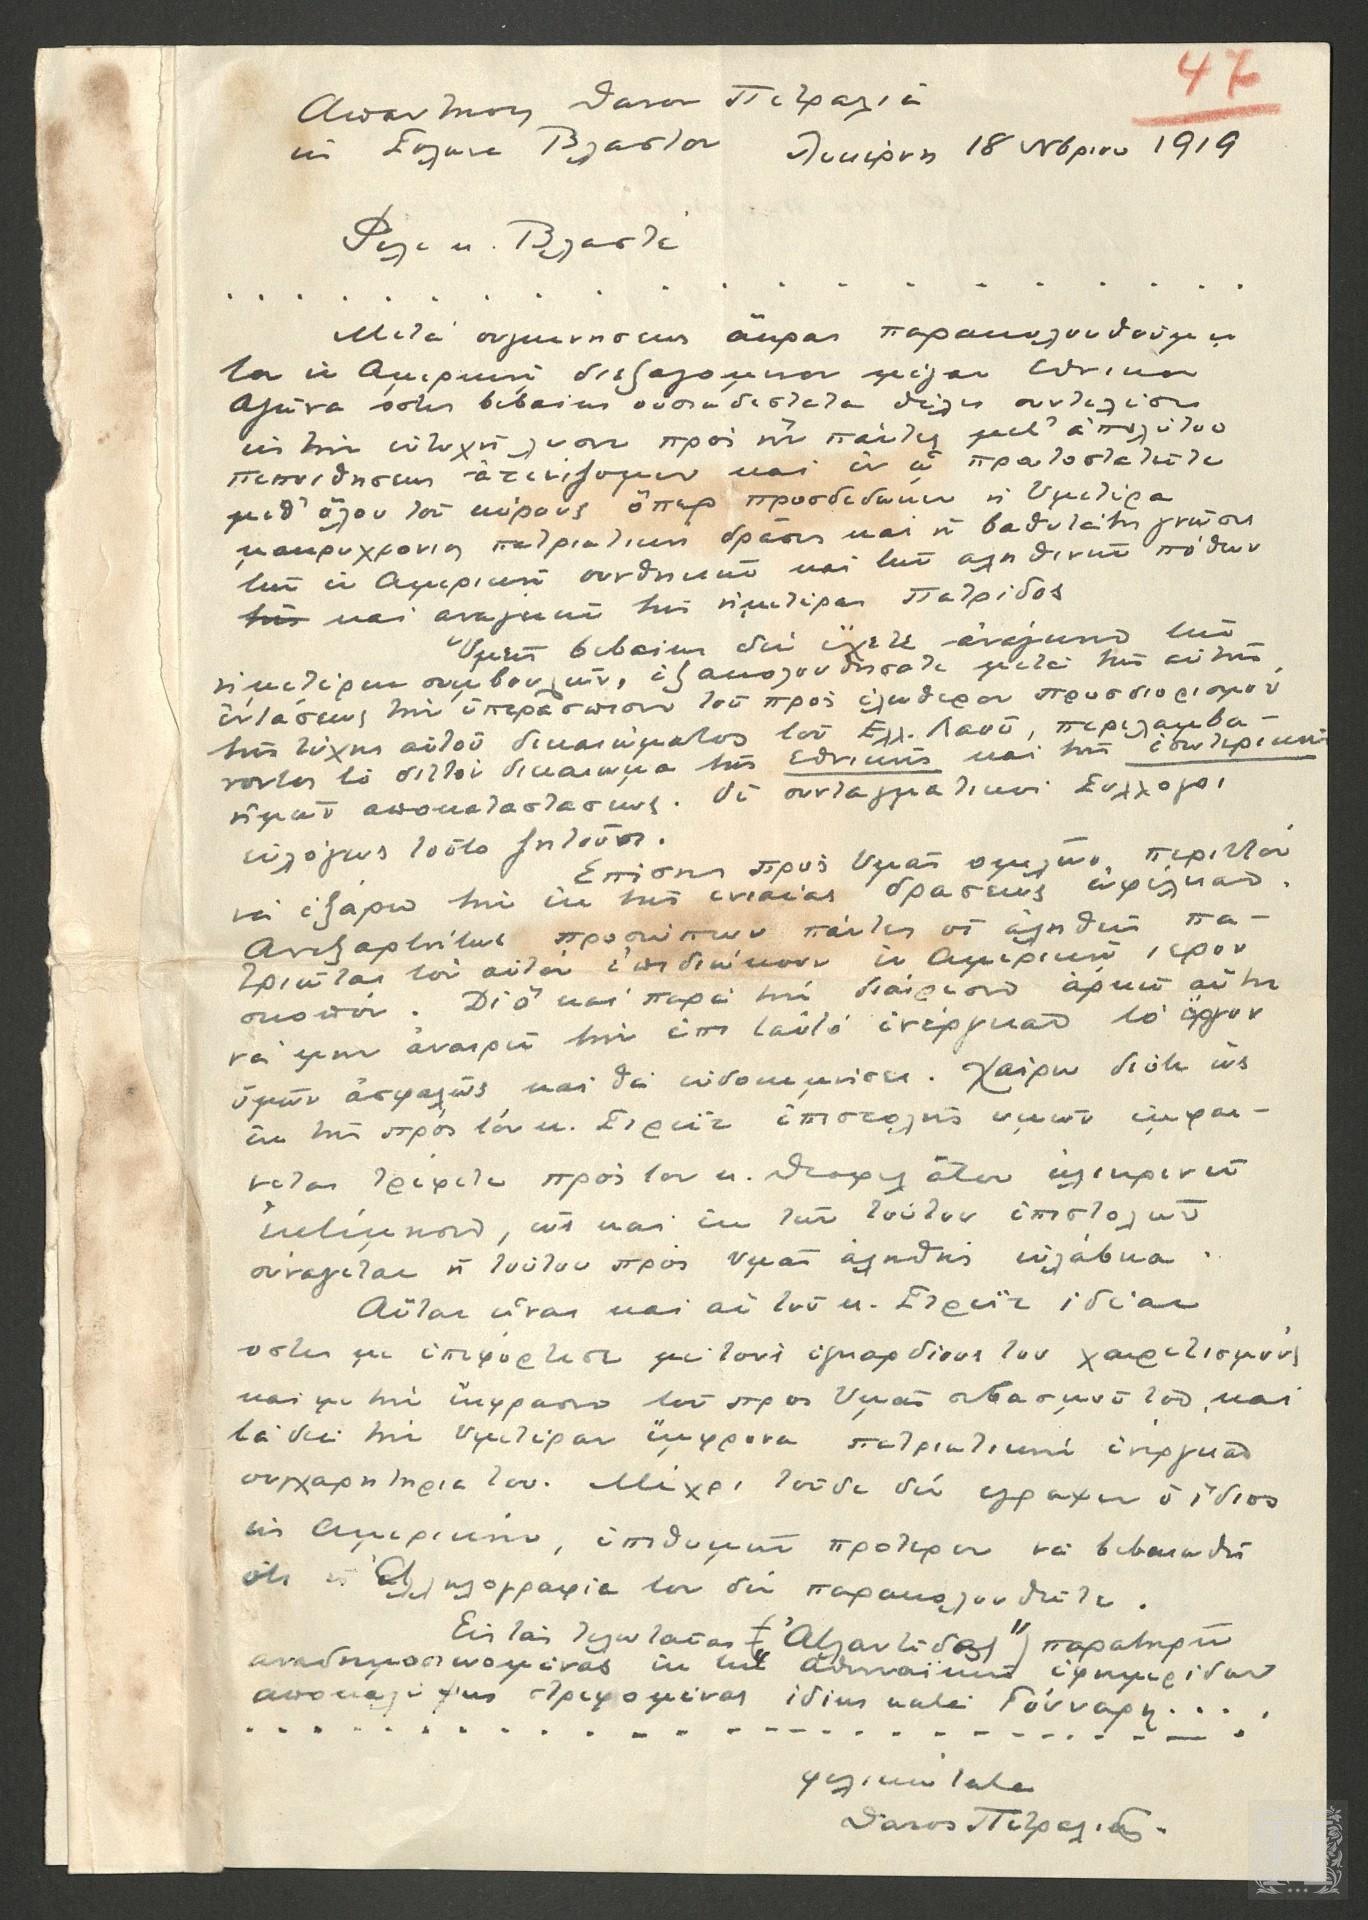 47
Απαντησις Θανου Πετραλιά
εις Σολωνα Βλαστον Λυκέρνη 18 Νβριου 1919
Φιλε κ. Βλαστέ
Μετά συγκινησεως άκρας παρακολουθούμεν
τον εν Αμερική διεξαγομενον μέγαν Εθνικον
Αγώνα οστις βεβαιως ουσιωδεστατα θέλει συντελέσει
εις την ευτυχή λυσιν προς ήν πάντες μετ' απολύτου
πεποιθησεως ατενίζομεν και εν ώ πρωτοστατείτε
μεθ' όλου του κύρους όπερ προσδεδωκεν η Υμετέρα
μακροχρονιος πατριωτικη δράσις και η βαθυτάτη γνώσις
των εν Αμερική συνθηκών και των αληθινών πόθων
της και αναγκών της ημετέρας Πατρίδος
Υμείς βεβαιως δεν έχετε ανάγκην των
ημετέρων συμβουλών, εξακολουθήσατε μετά της αυτής
εντάσεως την υπεράσπισιν του προς ελευθερον προσδιορισμόν
της τύχης αυτού δικαιώματος του Ελλ. Λαού, περιλαμβα-
νοντος το διττόν δικαιωμα της εθνικής και της εσωτερικής
ημών αποκαταστασεως. Οι συνταγματικοί Συλλογοι
ευλόγως τούτο ζητούσι.
Επίσης προς Υμάς ομιλών, περιττόν
νά εξάρω την εκ της ενιαίας δράσεως ωφέλειαν.
Ανεξαρτήτως προσώπων πάντες οι αληθείς πα-
τριώται τον αυτόν επιδιώκουν εν Αμερική ιερον
σκοπόν. Δι' ό και παρά την διαίρεσιν αρκεί αύτη
νά μην αναιρή την επι ταυτό ενέργειαν το έργον
υμών ασφαλώς και θά ευδοκιμήσει. Χαίρω διότι ως
εκ της πρός τόν κ. Στρέιτ επιστολής υμών εμφαι-
νεται τρέφετε πρός τον κ. Θεοφιλάτον ειλικρινή
εκτίμησιν, ως και εκ των τούτου επιστολών
συνάγεται η τούτου πρός Υμάς αληθής ευλάβεια.
Αύται είναι και αι του κ. Στρέιτ ιδέαι
οστις με επεφόρτισε με τους εγκαρδίους του χαιρετισμούς
και με την έκφρασιν του προς Υμάς σεβασμού του και
τα διά την Υμετέραν έμφρονα πατριωτικήν ενέργειαν
συγχαρητηρια του. Μέχρι τούδε δέν εγραψεν ο ίδιος
εις Αμερικήν, επιθυμών προτερον νά βεβαιωθή
ότι η αλληλογραφία του δέν παρακολουθείται.
Εις τάς τελευταίας ("Ατλαντίδας") παρατηρώ
αναδημοσιευομένας εκ των αθηναϊκών εφημερίδων
αποκαλύψεις στρεφομένας ιδίως κατά Γούναρη....
φιλικώτατα
Θανος Πετραλιάς.